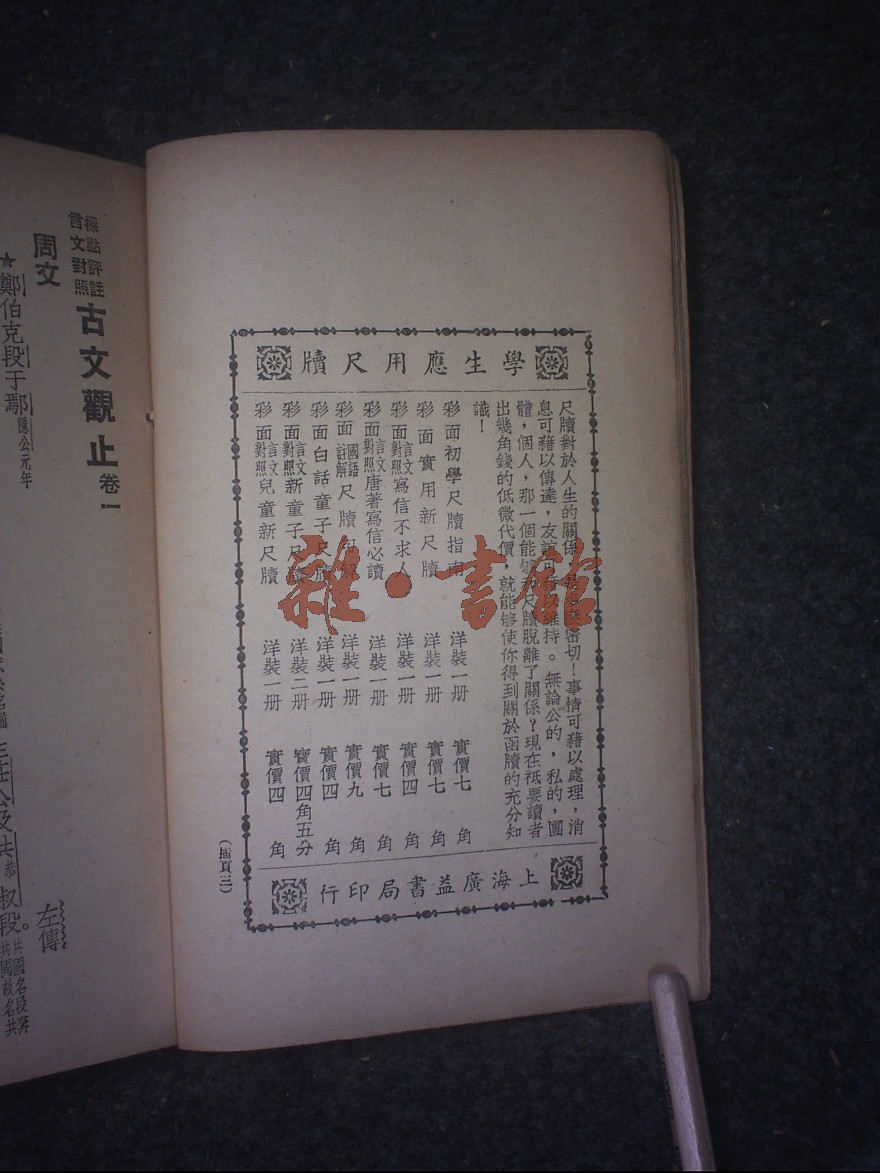 學生應用尺牘
尺牘對於人生的關係 密切！事情可藉以處理，消
息可藉以傳達，友誼可藉以維持。無論公的，私的，團
體，個人，那一個能够和尺牘脫離了關係？現在祇要讀者
出幾角錢的低微代價，就能够使你得到關於函牘的充分知
識！
彩面初學尺牘指南 洋裝一册 實價七角
彩面實用新尺牘 洋裝一册 實價七角
彩面言文對照寫信不求人 洋裝一册 實價四角
彩面言文對照唐著寫信必讀 洋裝一册 實價七角
彩面國語註解尺牘 解 洋裝一册 實價九角
彩面白話童子尺牘 洋裝一册 實價四角
彩面言文對照新童子尺牘 洋裝二册 實價四角五分
彩面言文對照兒童新尺牘 洋裝一册 實價四角
上海廣益書局印行
（插頁三）
雜·書館
標點評註言文對照古文觀止卷一
周文 左傳
★鄭伯克段于鄢隱公元年
莊公及共恭叔段。